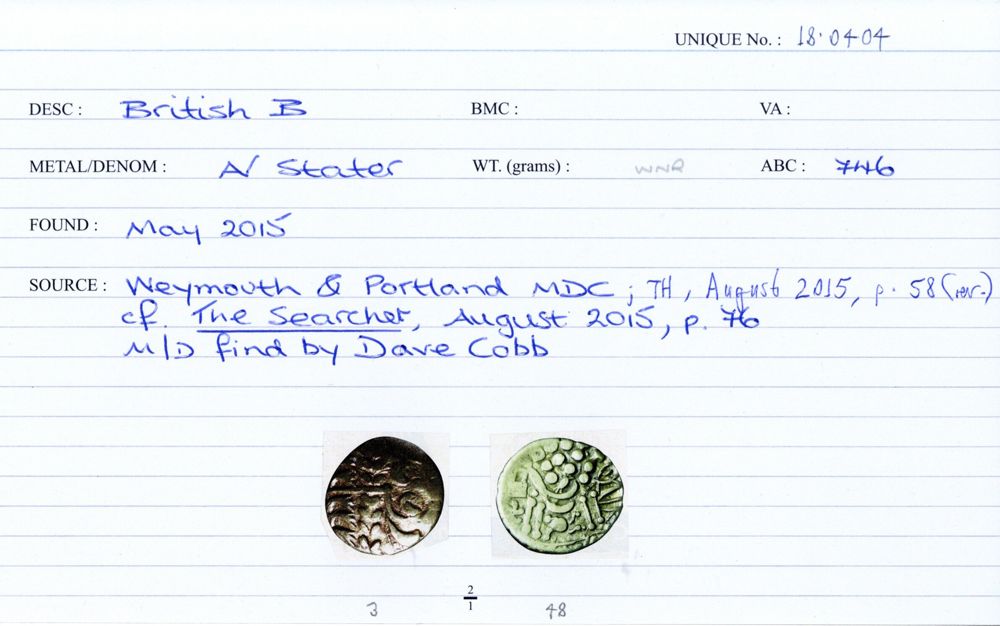 UNIQUE No. : 18.0404
DESC : British B BMC : VA :
METAL/DENOM : A/ Stater WT. (grams) : WNR ABC : 746
FOUND : May 2015
SOURCE : Weymouth & Portland MDC ; TH, August 2015, p. 58 (rev.)
cf. The Searcher, August 2015, p. 76
M/D find by Dave Cobb
2
1
3 48